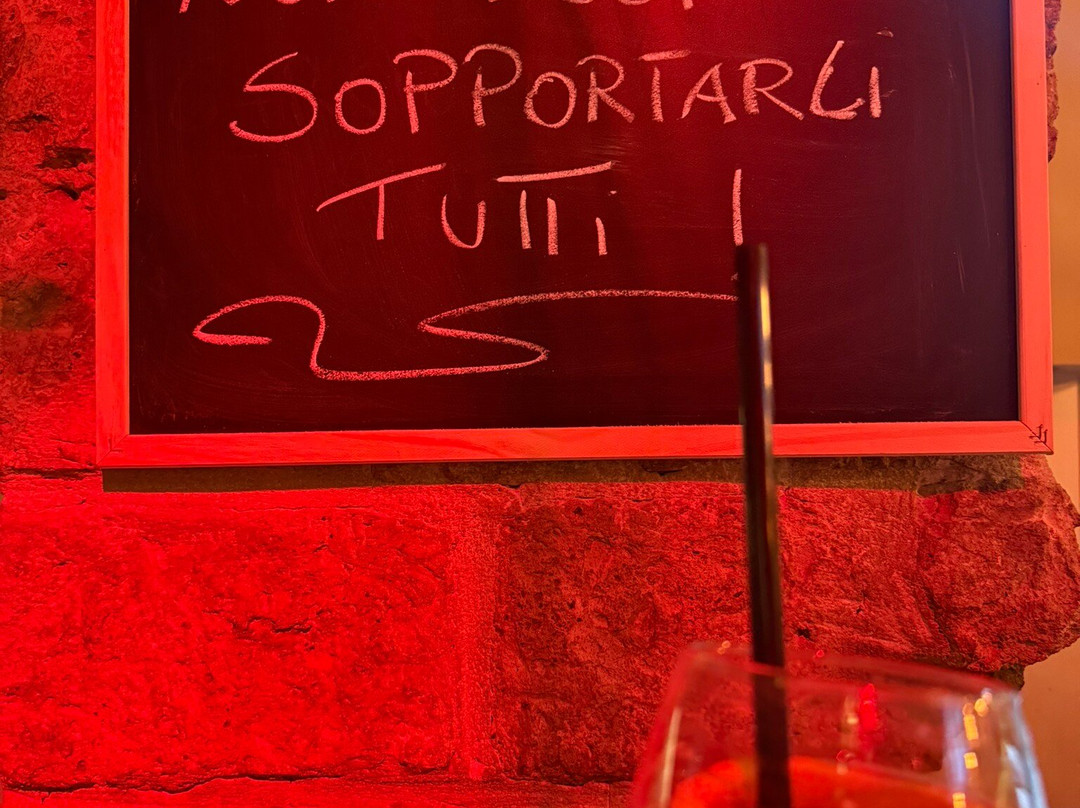 SOPPORTARLI
TUTTI !